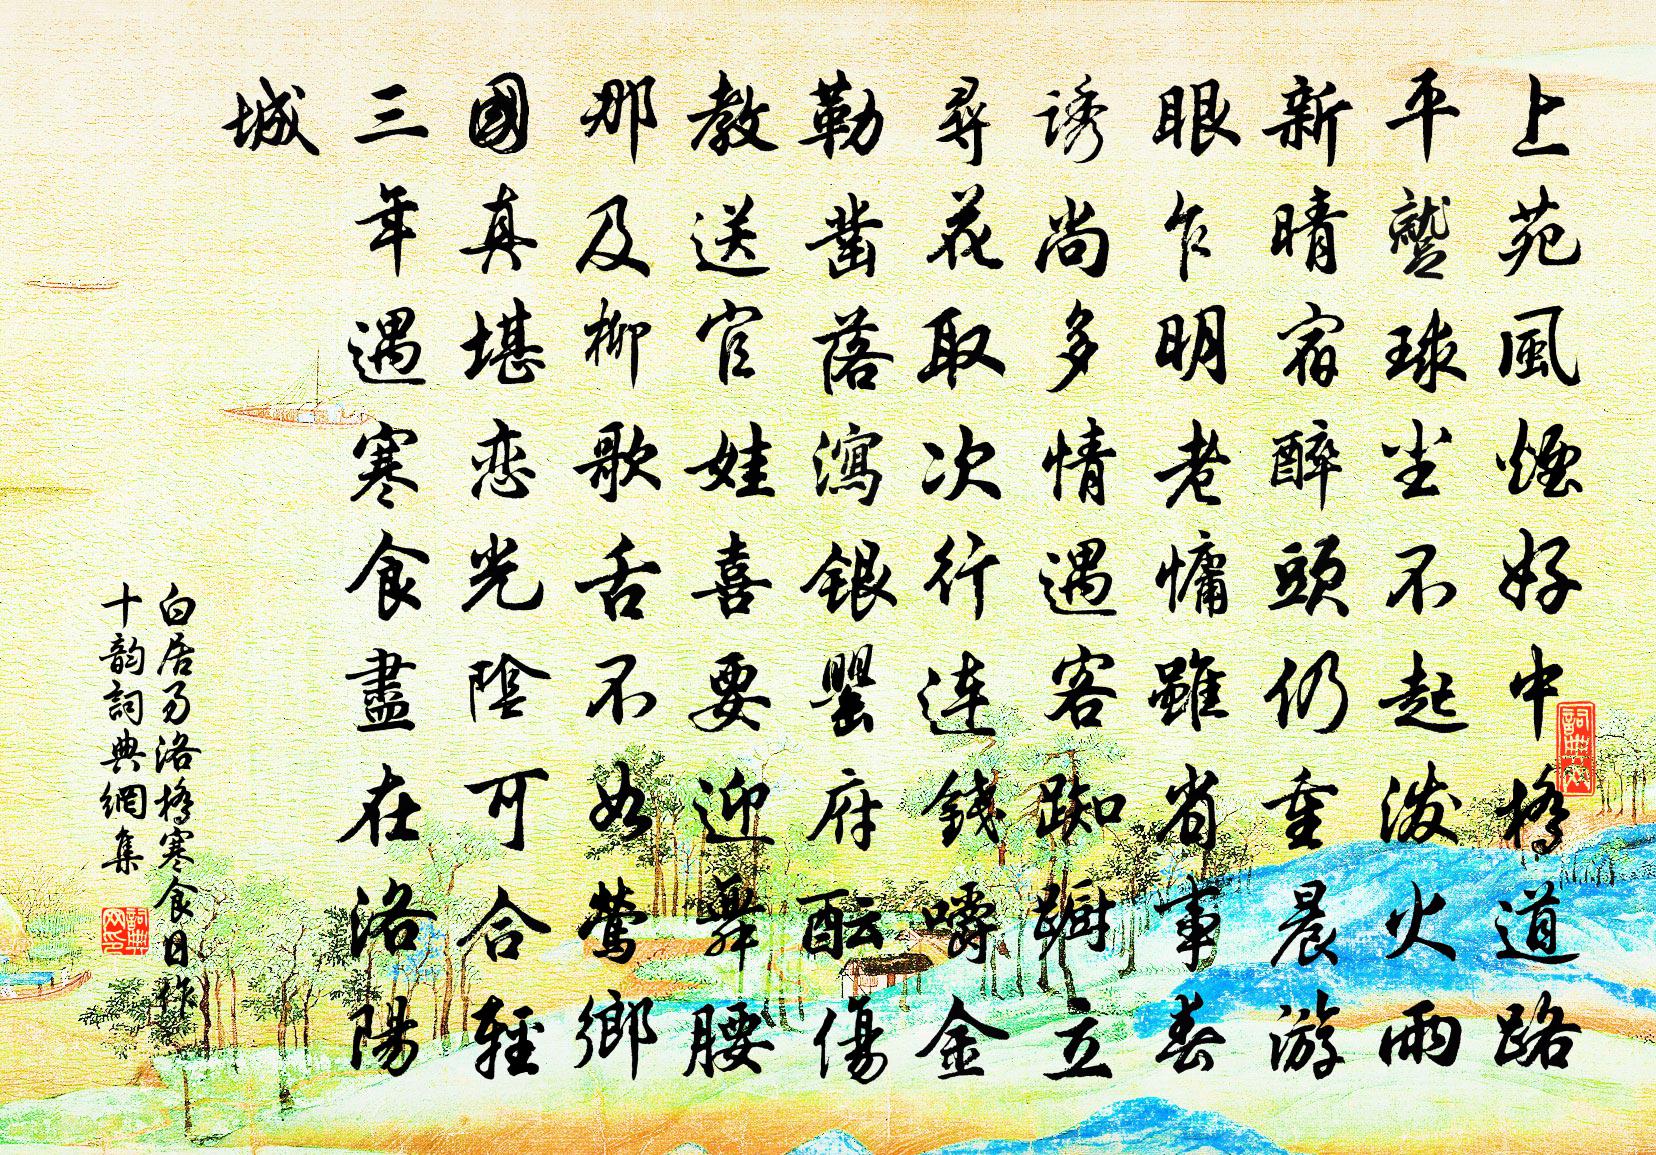 上苑風煙好中橋道路
平蹵球尘不起泼火雨
新晴宿醉頭仍重晨游
眼乍明老慵雖省事春
誘尚多情遇客踟躕立
尋花取次行連錢嚼金
勒凿落瀉銀罌府酝傷
教送官娃喜要迎舞腰
那及柳歌舌不如莺鄉
國真堪恋光陰可合輕
三年遇寒食盡在洛陽
城
白居易洛橋寒食日作
十韵詞典網集